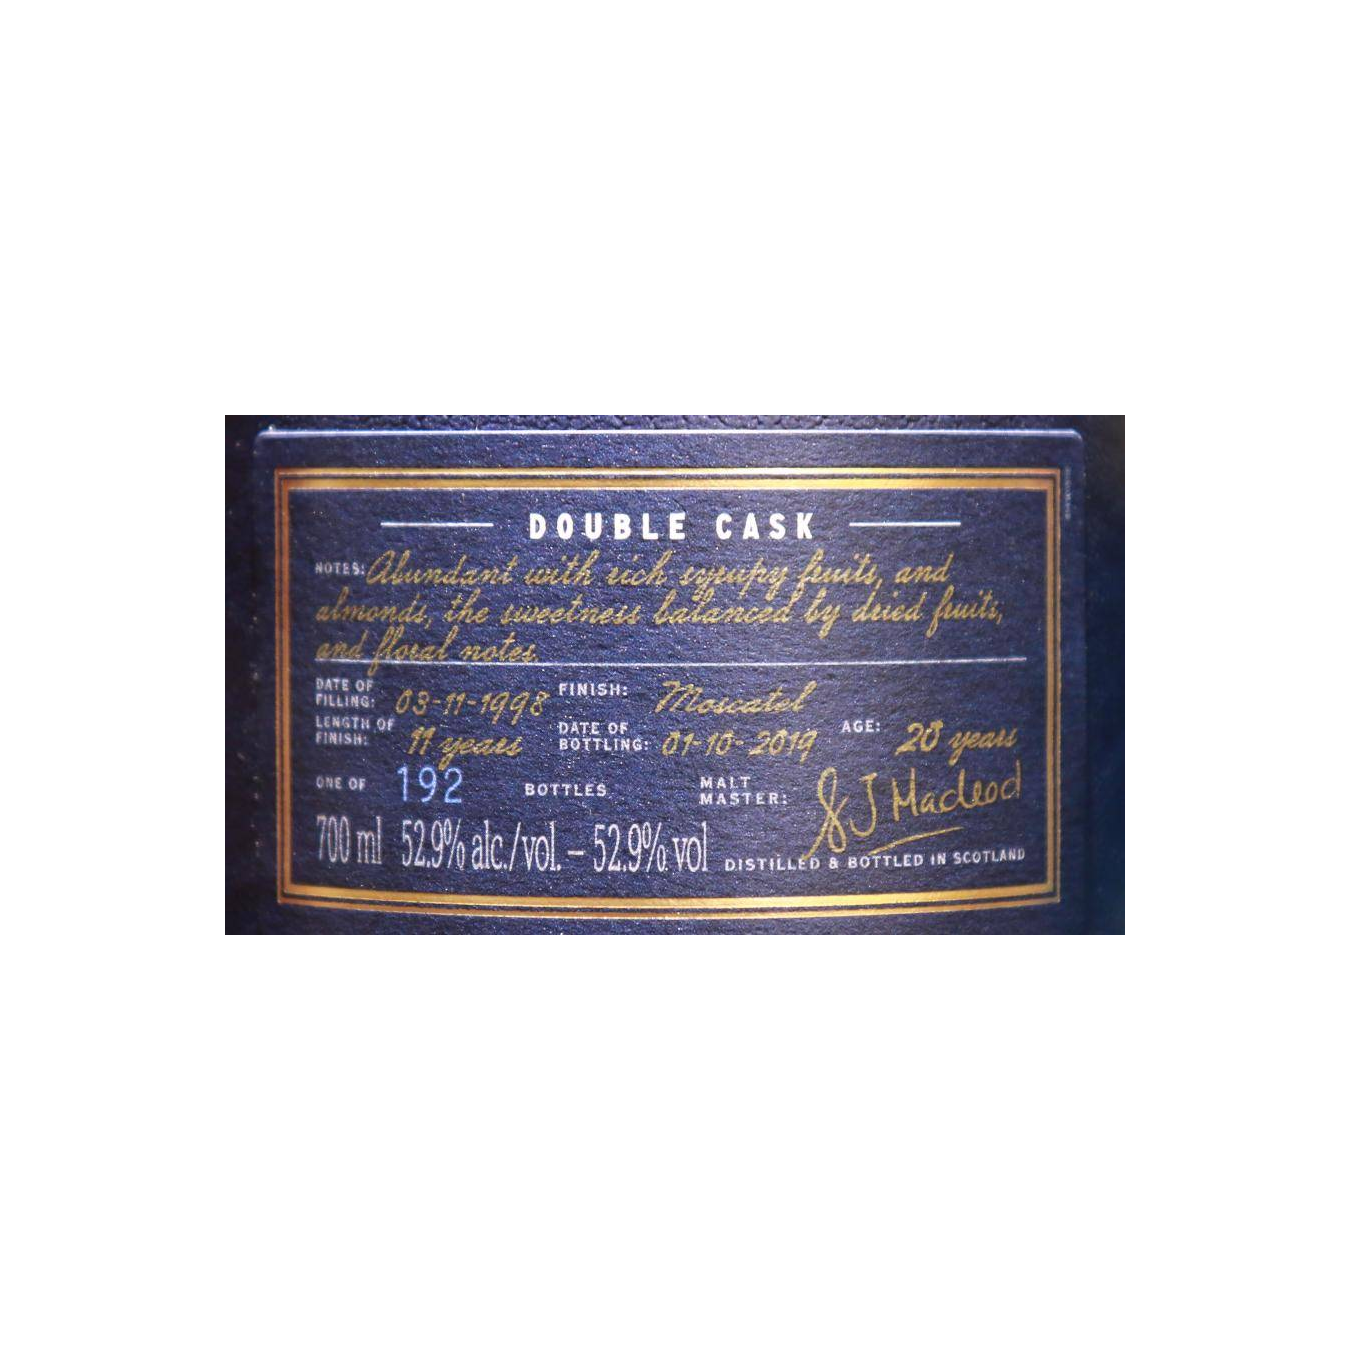 DOUBLE CASK
NOTES: Abundant with rich syrupy fruits, and
almonds, the sweetness balanced by dried fruits,
and floral notes.
DATE OF FILLING: 03-11-1998 FINISH: Moscatel
LENGTH OF FINISH: 11 years DATE OF BOTTLING: 01-10-2019 AGE: 20 years
ONE OF 192 BOTTLES MALT MASTER: S J Macleod
700 ml 52.9% alc./vol. – 52.9% vol DISTILLED & BOTTLED IN SCOTLAND